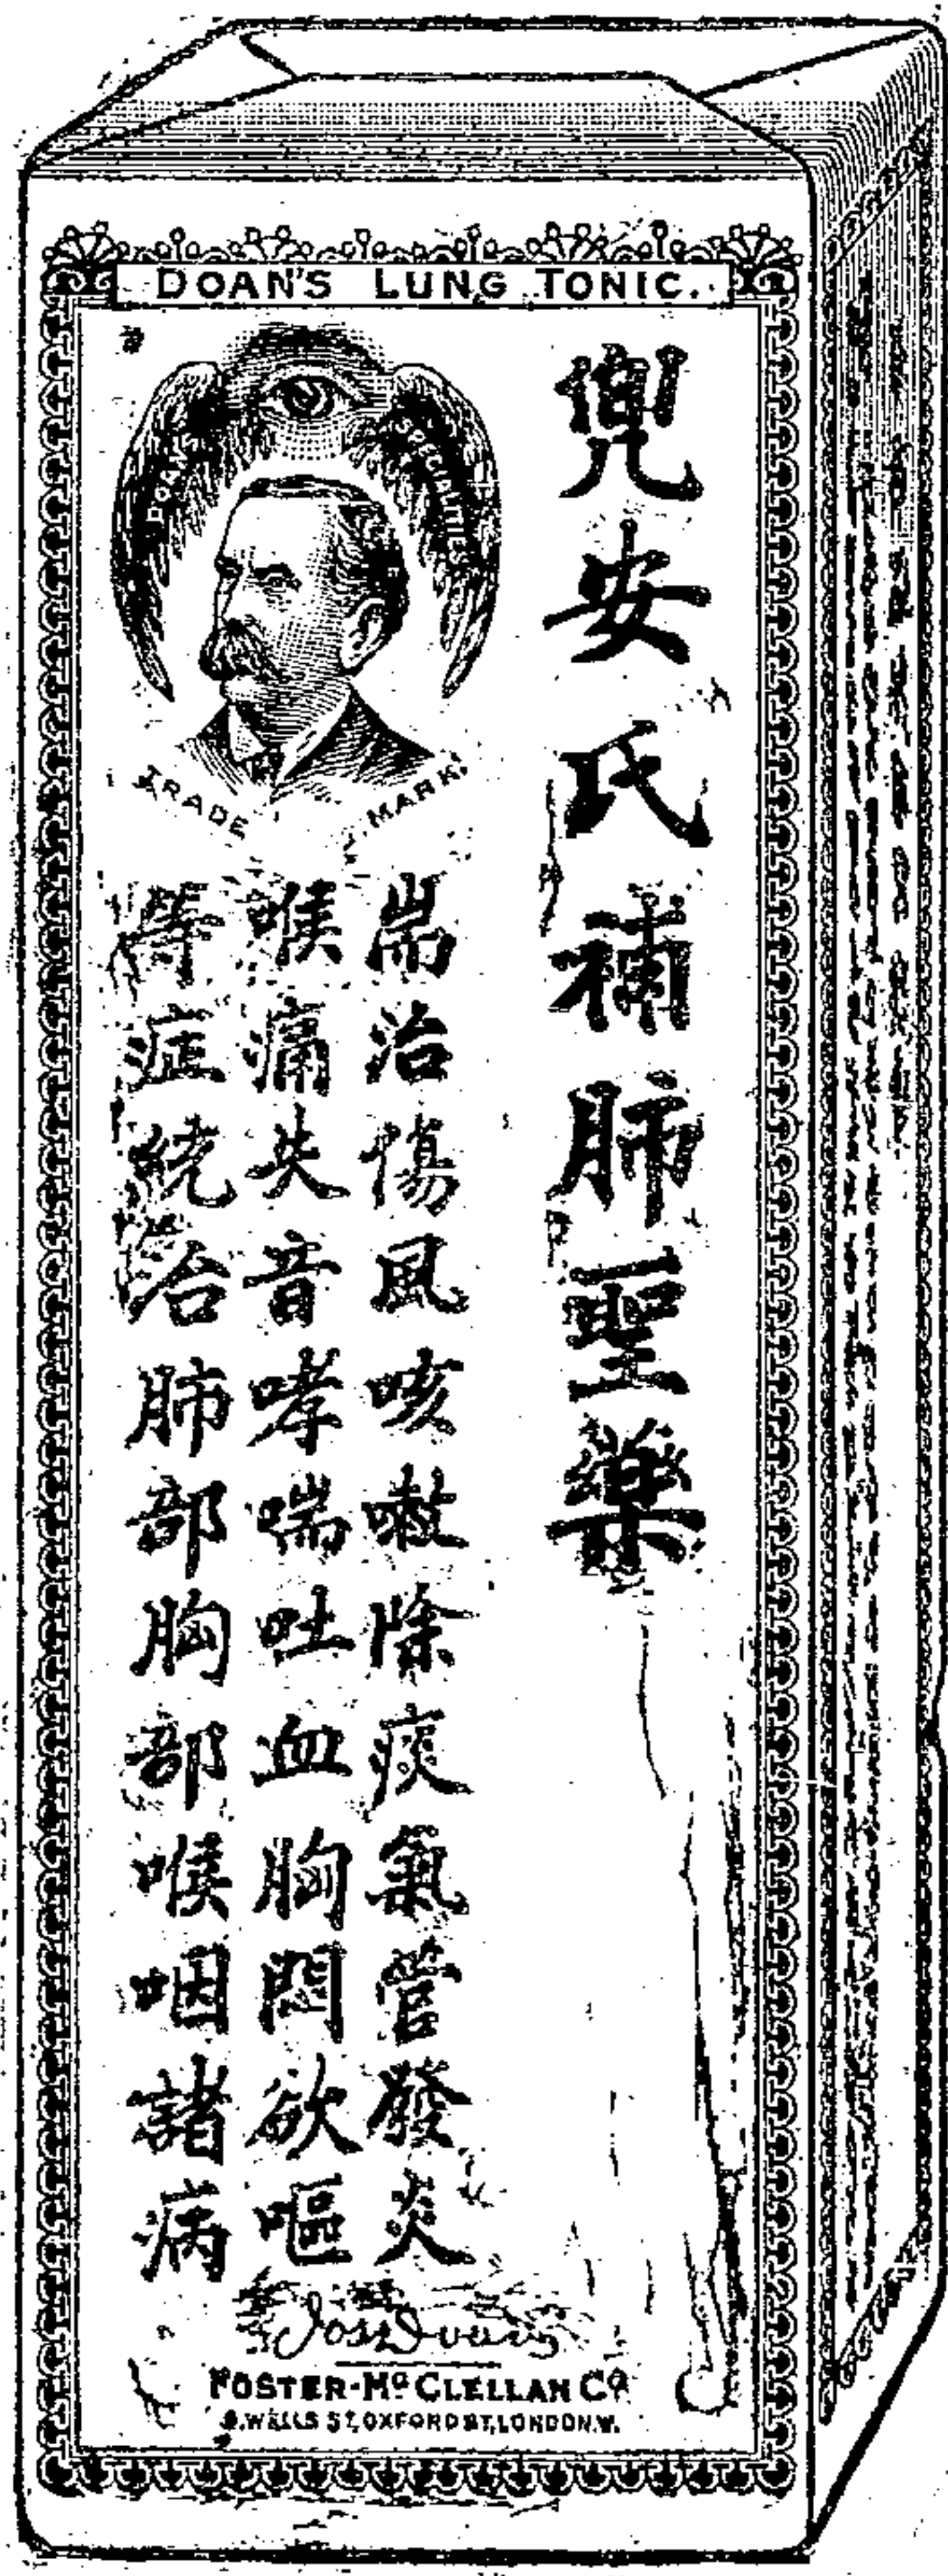 DOAN'S LUNG TONIC.
DOAN'S SPECIALITIES
TRADE MARK
兜安氏補肺聖藥
耑治傷風咳嗽除痰氣管發炎
喉痛失音哮喘吐血胸悶欲嘔
等症統治肺部胸部喉咽諸病
Jos Doan
FOSTER-McCLELLAN Co
8, WELLS ST, OXFORD ST, LONDON. W.